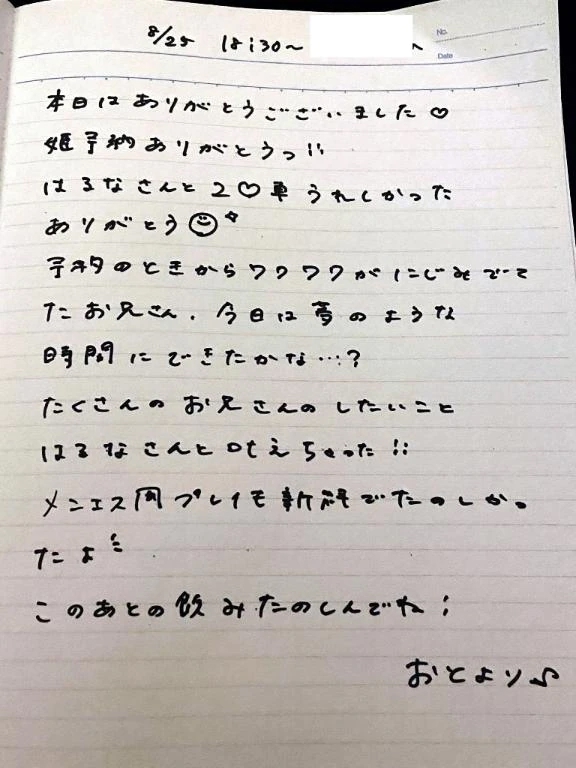 8/25 18:30~ へ
No.
Date
本日はありがとうございました♡
姫予約ありがとうっ!!
はるなさんと2♡車うれしかった
ありがとう
予約のときからワクワクがにじみでて
たお兄さん、今日は夢のような
時間にできたかな…?
たくさんのお兄さんのしたいこと
はるなさんと叶えちゃった!!
メンエス風プレイも新鮮でたのしかっ
たよ
このあとの飲みたのしんでね!
おとより♪